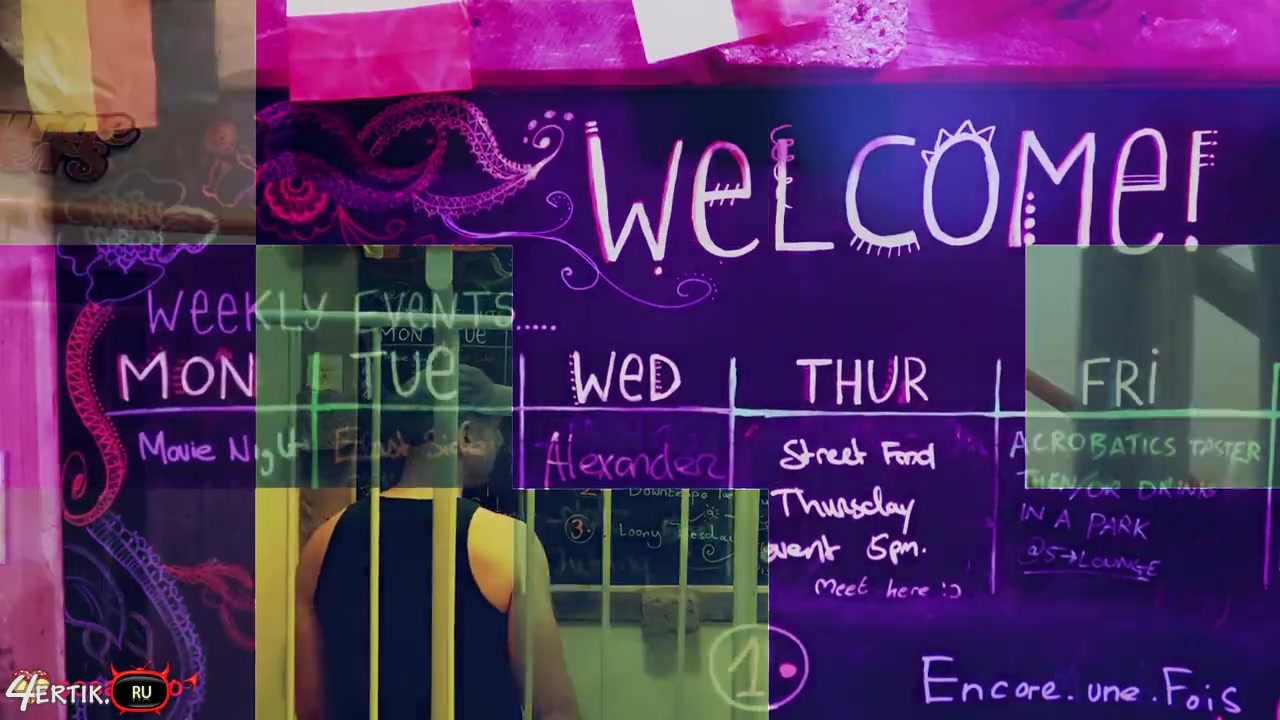 WELCOME!
WEEKLY EVENTS.....
MON TUE WED THUR FRI
MON TUE
Movie Night
Alexander
Street Food
Thursday
event 5pm.
Meet here :)
ACROBATICS TASTER
THEN/OR DRINK
IN A PARK
@5→LOUNGE
2
Downtempo Tue
3. Loony Tuesday
1.
Encore.une.Fois
4ERTIK.RU